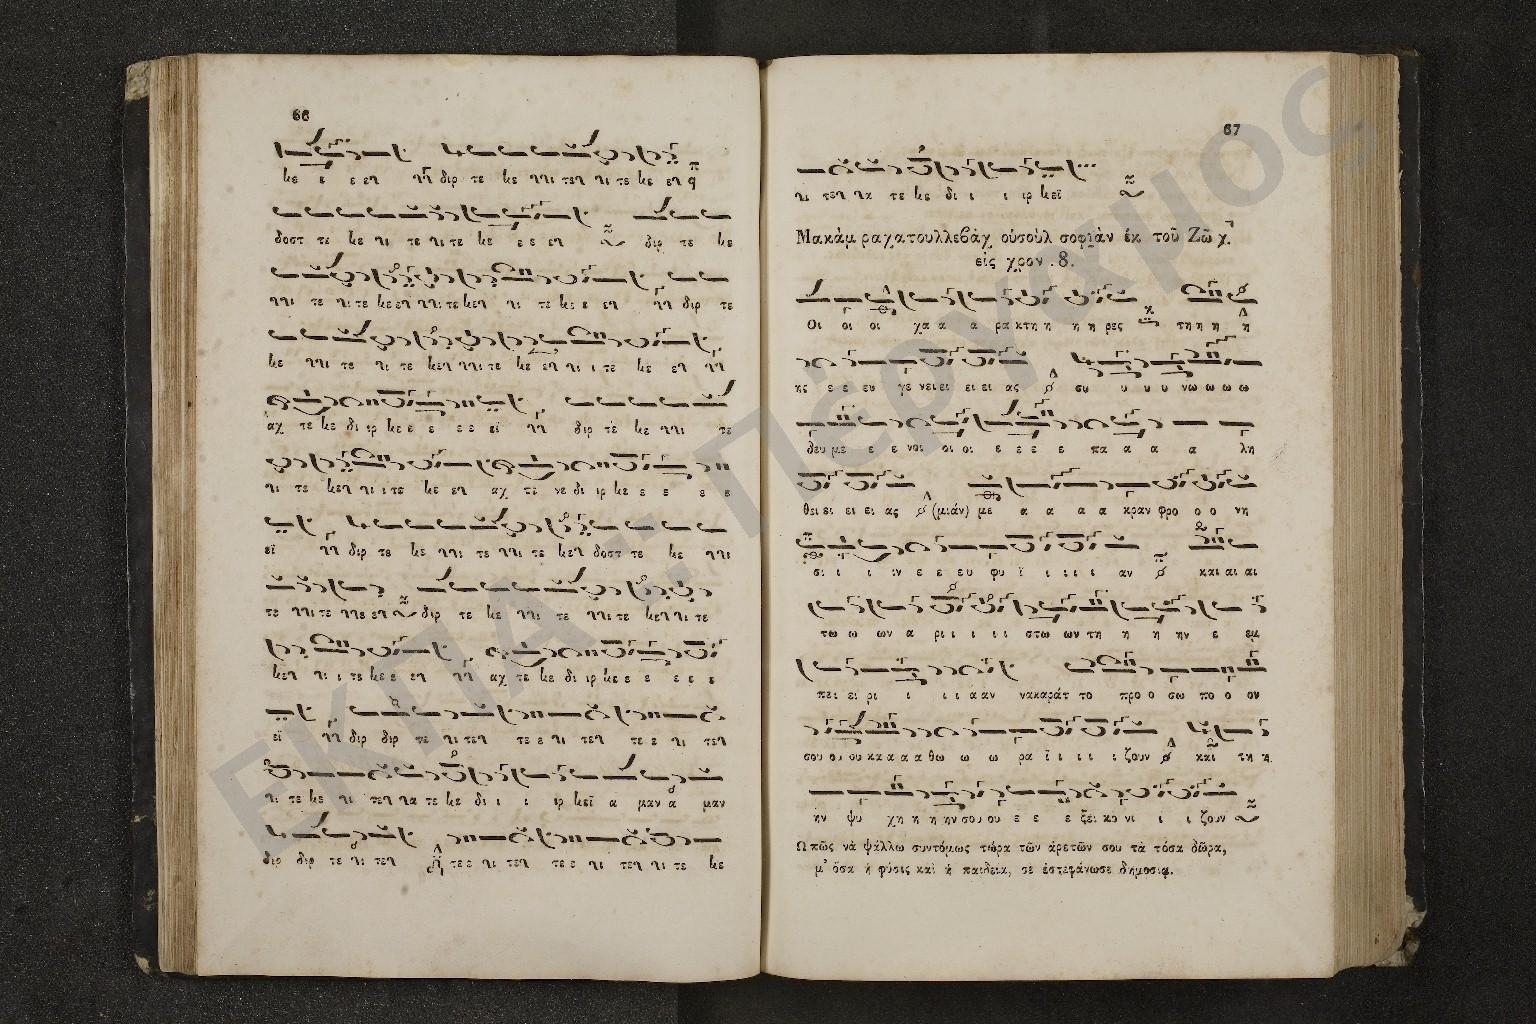 66
κε ε ε εν νη διρ τε κε νι τεν νι τε κε εν
δοστ τε κε νι τε νι τε κε ε ε εν διρ τε κε
νι τε νι τε κε εν νι τε κεν νι τε κε ε ε εν διρ τε
κε νι τε νι τε κεν νι τε κε εν νι ι τε κε εν
αχ τε κε δι ιρ κε ε ε ε ε εϊ διρ τε κε νι τε
νι τε κεν νι ι τε κε εν αχ τε νε δι ιρ κε ε ε ε ε
εϊ διρ τε κε νι τε νι τε κεν δοστ τε κε νι
διρ τε κε νι τε νι τε κεν νι τε
κεν νι ι τε κε ε εν αχ τε κε δι ιρ κε ε ε ε ε ε
εϊ διρ διρ τε νι τεν τε ε νι τεν τε ε νι τεν
νι τε κε νι τεν να τε κε δι ι ι ιρ κεϊ α μαν α μαν
διρ διρ τε νι τεν τε ε νι τεν τε ε νι τεν νι τε κε
67
νι τεν να τε κε δι ι ι ιρ κεϊ
Μακὰμ ραχατουλλεβὰχ οὐσοὺλ σοφιὰν ἐκ τοῦ Ζῶ χ.
εἰς χρον. 8.
Οι οι οι χα α α ρα κτη η η η ρες τη η η η
ης ε ε ευ γε νει ει ει ει ας συ υ υ υ νω ω ω ω
δευ με ε ε νοι οι οι ε ε ε ε πα α α α λη
θει ει ει ει ας (μιάν) με α α α α κραν φρο ο ο νη
σι ι ι ιν ε ε ευ φυ ϊ ι ι ι ι αν και αι αι
τω ω ων α ρι ι ι ι ι στω ων τη η η ην ε εμ
πει ει ρι ι ι ι α αν νακαράτ το προ ο σω πο ο ον
σου ου ου κα α α α θω ω ω ρα ϊ ι ι ι ι ζουν και τη η
ην ψυ χη η η ην σου ου ε ε ε ξει κο νι ι ι ζουν
Ω πῶς νὰ ψάλλω συντόμως τώρα τῶν ἀρετῶν σου τὰ τόσα δῶρα,
μ' ὅσα ἡ φύσις καὶ ἡ παιδεία, σὲ ἐστεφάνωσε δημοσίᾳ.
ΕΚΠΑ:: Πέργαμος